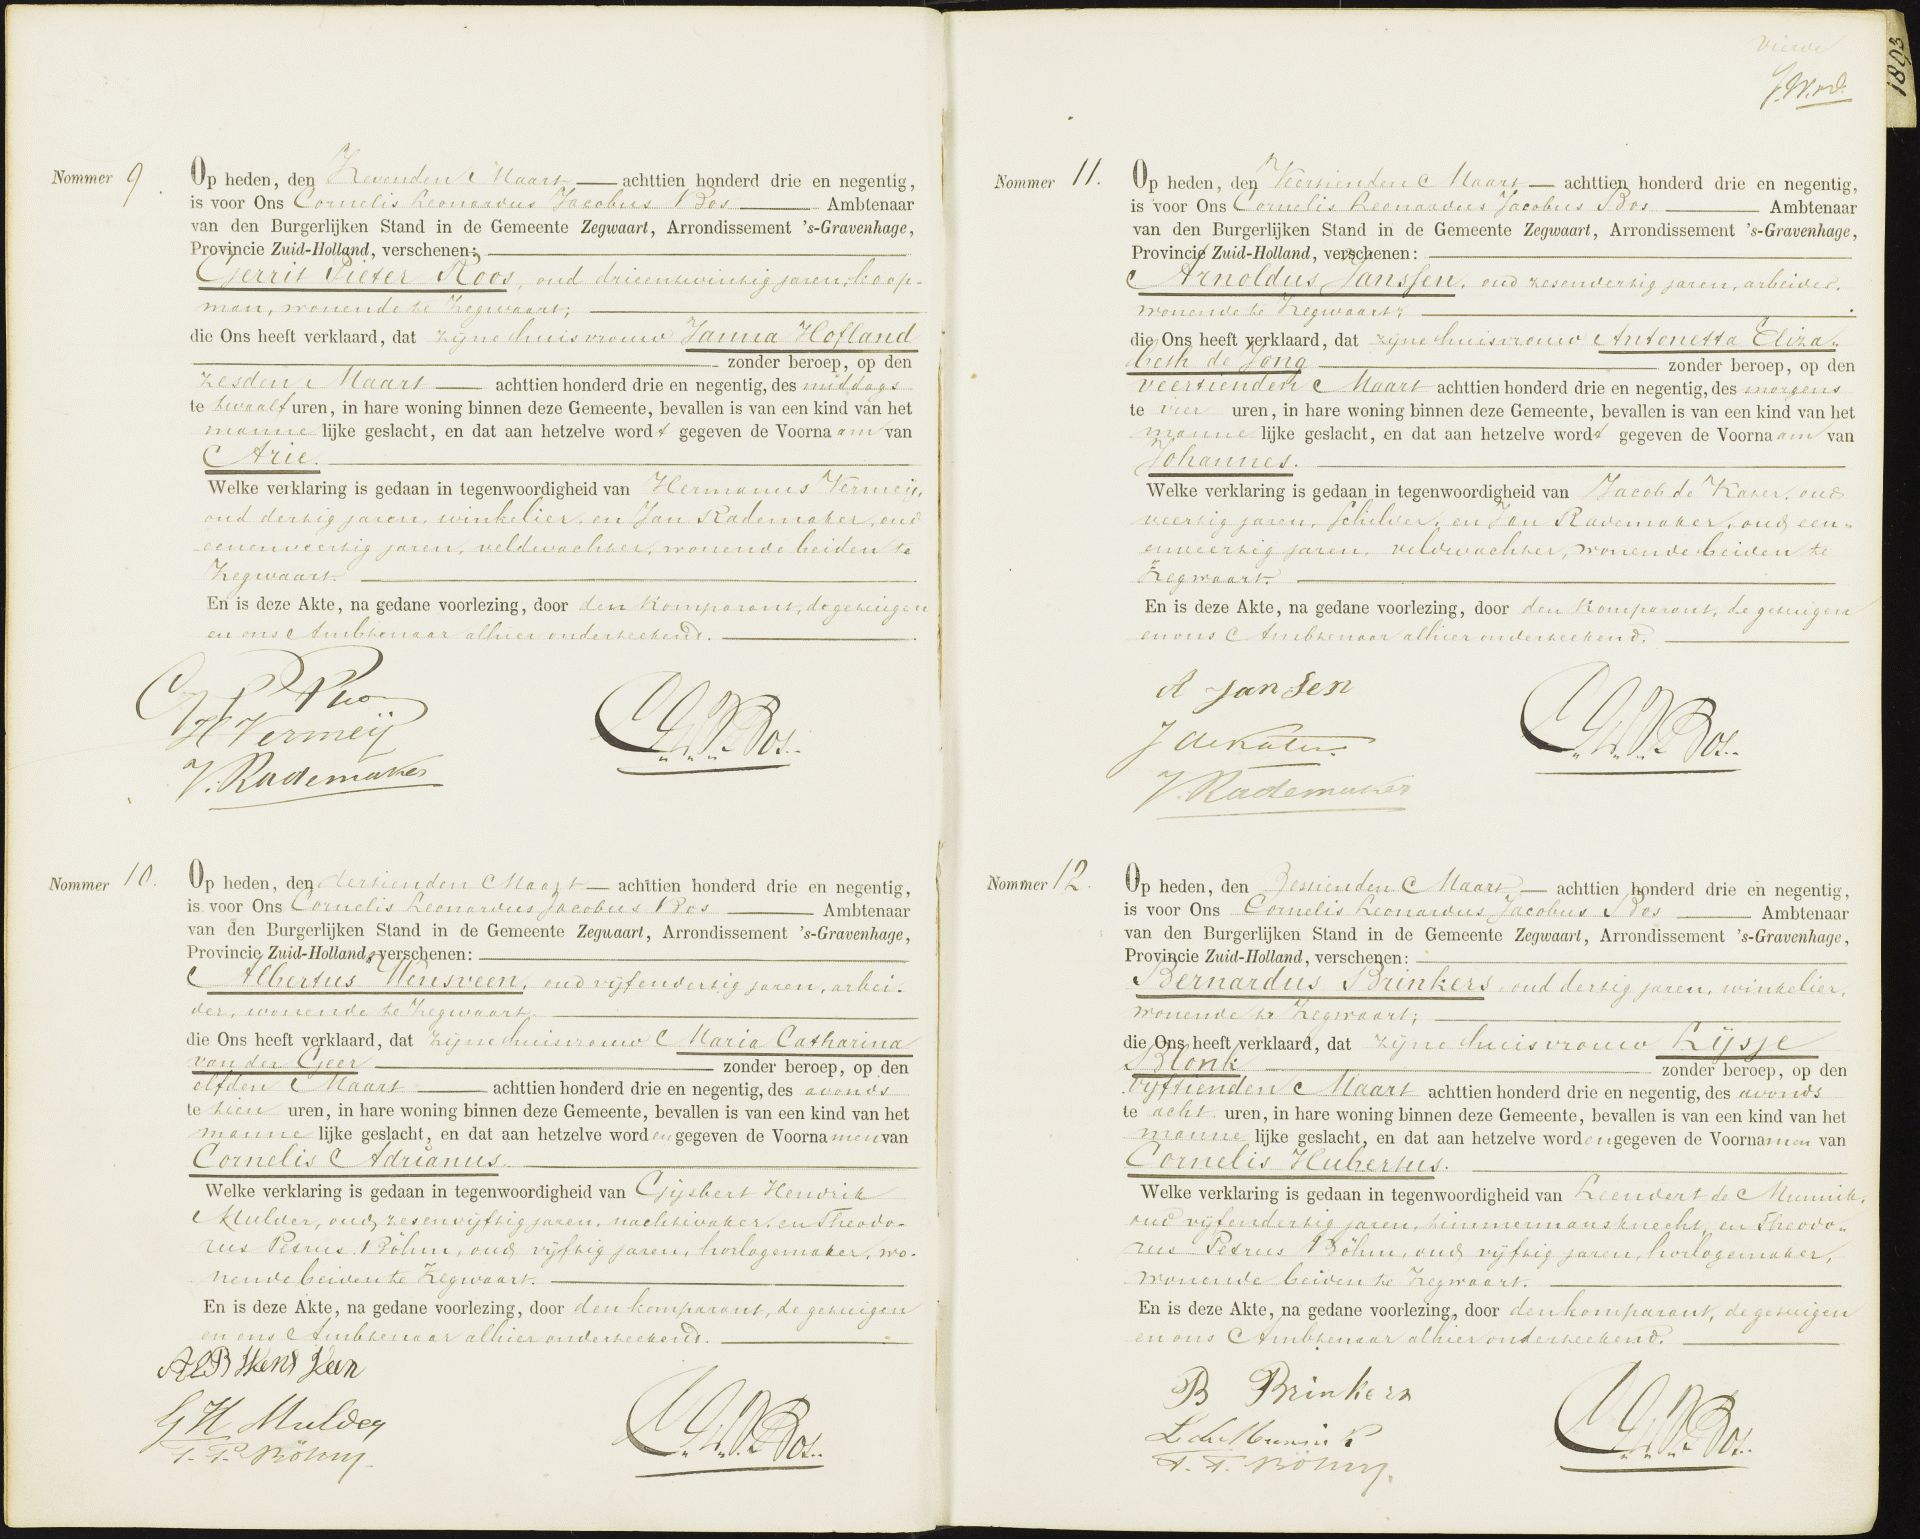 Nommer 9.
Op heden, den Zevenden Maart achttien honderd drie en negentig,
is voor Ons Cornelis Leonardus Jacobus Bos Ambtenaar
van den Burgerlijken Stand in de Gemeente Zegwaart, Arrondissement 's-Gravenhage,
Provincie Zuid-Holland, verschenen:
Gerrit Pieter Roos, oud drieentwintig jaren, koop-
man, wonende te Zegwaart;
die Ons heeft verklaard, dat zijne huisvrouw Janna Hofland
zonder beroep, op den
zesden Maart achttien honderd drie en negentig, des middags
te twaalf uren, in hare woning binnen deze Gemeente, bevallen is van een kind van het
mannelijke geslacht, en dat aan hetzelve wordt gegeven de Voornaam van
Arie.
Welke verklaring is gedaan in tegenwoordigheid van Hermanus Vermeij,
oud dertig jaren, winkelier, en Jan Rademaker, oud
eenenveertig jaren, veldwachter, wonende beiden te
Zegwaart.
En is deze Akte, na gedane voorlezing, door den komparant, de getuigen
en ons Ambtenaar alhier onderteekend.
G P Roos
H Vermeij
J. Rademaker
C.L.J. Bos.
Nommer 10.
Op heden, den dertienden Maart achttien honderd drie en negentig,
is voor Ons Cornelis Leonardus Jacobus Bos Ambtenaar
van den Burgerlijken Stand in de Gemeente Zegwaart, Arrondissement 's-Gravenhage,
Provincie Zuid-Holland, verschenen:
Albertus Wensveen, oud vijfendertig jaren, arbei-
der, wonende te Zegwaart.
die Ons heeft verklaard, dat zijne huisvrouw Maria Catharina
van der Geer zonder beroep, op den
elfden Maart achttien honderd drie en negentig, des avonds
te tien uren, in hare woning binnen deze Gemeente, bevallen is van een kind van het
mannelijke geslacht, en dat aan hetzelve worden gegeven de Voornamen van
Cornelis Adrianus.
Welke verklaring is gedaan in tegenwoordigheid van Gijsbert Hendrik
Mulder, oud zesenvijftig jaren, nachtwaker, en Theodo-
rus Petrus Böhm, oud vijftig jaren, horlogemaker, wo-
nende beiden te Zegwaart.
En is deze Akte, na gedane voorlezing, door den komparant, de getuigen
en ons Ambtenaar alhier onderteekend.
ALB Wensveen
G H Mulder
T. P. Böhm
C.L.J. Bos.
Vierde
1893
Nommer 11.
Op heden, den Veertienden Maart achttien honderd drie en negentig,
is voor Ons Cornelis Leonardus Jacobus Bos Ambtenaar
van den Burgerlijken Stand in de Gemeente Zegwaart, Arrondissement 's-Gravenhage,
Provincie Zuid-Holland, verschenen:
Arnoldus Janssen, oud zesendertig jaren, arbeider,
wonende te Zegwaart;
die Ons heeft verklaard, dat zijne huisvrouw Antonetta Eliza-
beth de Jong zonder beroep, op den
veertienden Maart achttien honderd drie en negentig, des morgens
te vier uren, in hare woning binnen deze Gemeente, bevallen is van een kind van het
mannelijke geslacht, en dat aan hetzelve wordt gegeven de Voornaam van
Johannes.
Welke verklaring is gedaan in tegenwoordigheid van Jacob de Kater, oud
veertig jaren, schilder, en Jan Rademaker, oud een-
enveertig jaren, veldwachter, wonende beiden te
Zegwaart.
En is deze Akte, na gedane voorlezing, door den komparant, de getuigen
en ons Ambtenaar alhier onderteekend.
A Jansen
J de Kater
J. Rademaker
C.L.J. Bos.
Nommer 12.
Op heden, den Zestienden Maart achttien honderd drie en negentig,
is voor Ons Cornelis Leonardus Jacobus Bos Ambtenaar
van den Burgerlijken Stand in de Gemeente Zegwaart, Arrondissement 's-Gravenhage,
Provincie Zuid-Holland, verschenen:
Bernardus Brinkers, oud dertig jaren, winkelier,
wonende te Zegwaart;
die Ons heeft verklaard, dat zijne huisvrouw Lijsje
Blonk zonder beroep, op den
vijftienden Maart achttien honderd drie en negentig, des avonds
te acht uren, in hare woning binnen deze Gemeente, bevallen is van een kind van het
mannelijke geslacht, en dat aan hetzelve worden gegeven de Voornamen van
Cornelis Hubertus.
Welke verklaring is gedaan in tegenwoordigheid van Leendert de Munnik,
oud vijfendertig jaren, timmermansknecht, en Theodo-
rus Petrus Böhm, oud vijftig jaren, horlogemaker,
wonende beiden te Zegwaart.
En is deze Akte, na gedane voorlezing, door den komparant, de getuigen
en ons Ambtenaar alhier onderteekend.
B Brinkers
L de Munnik
T. P. Böhm.
C.L.J. Bos.